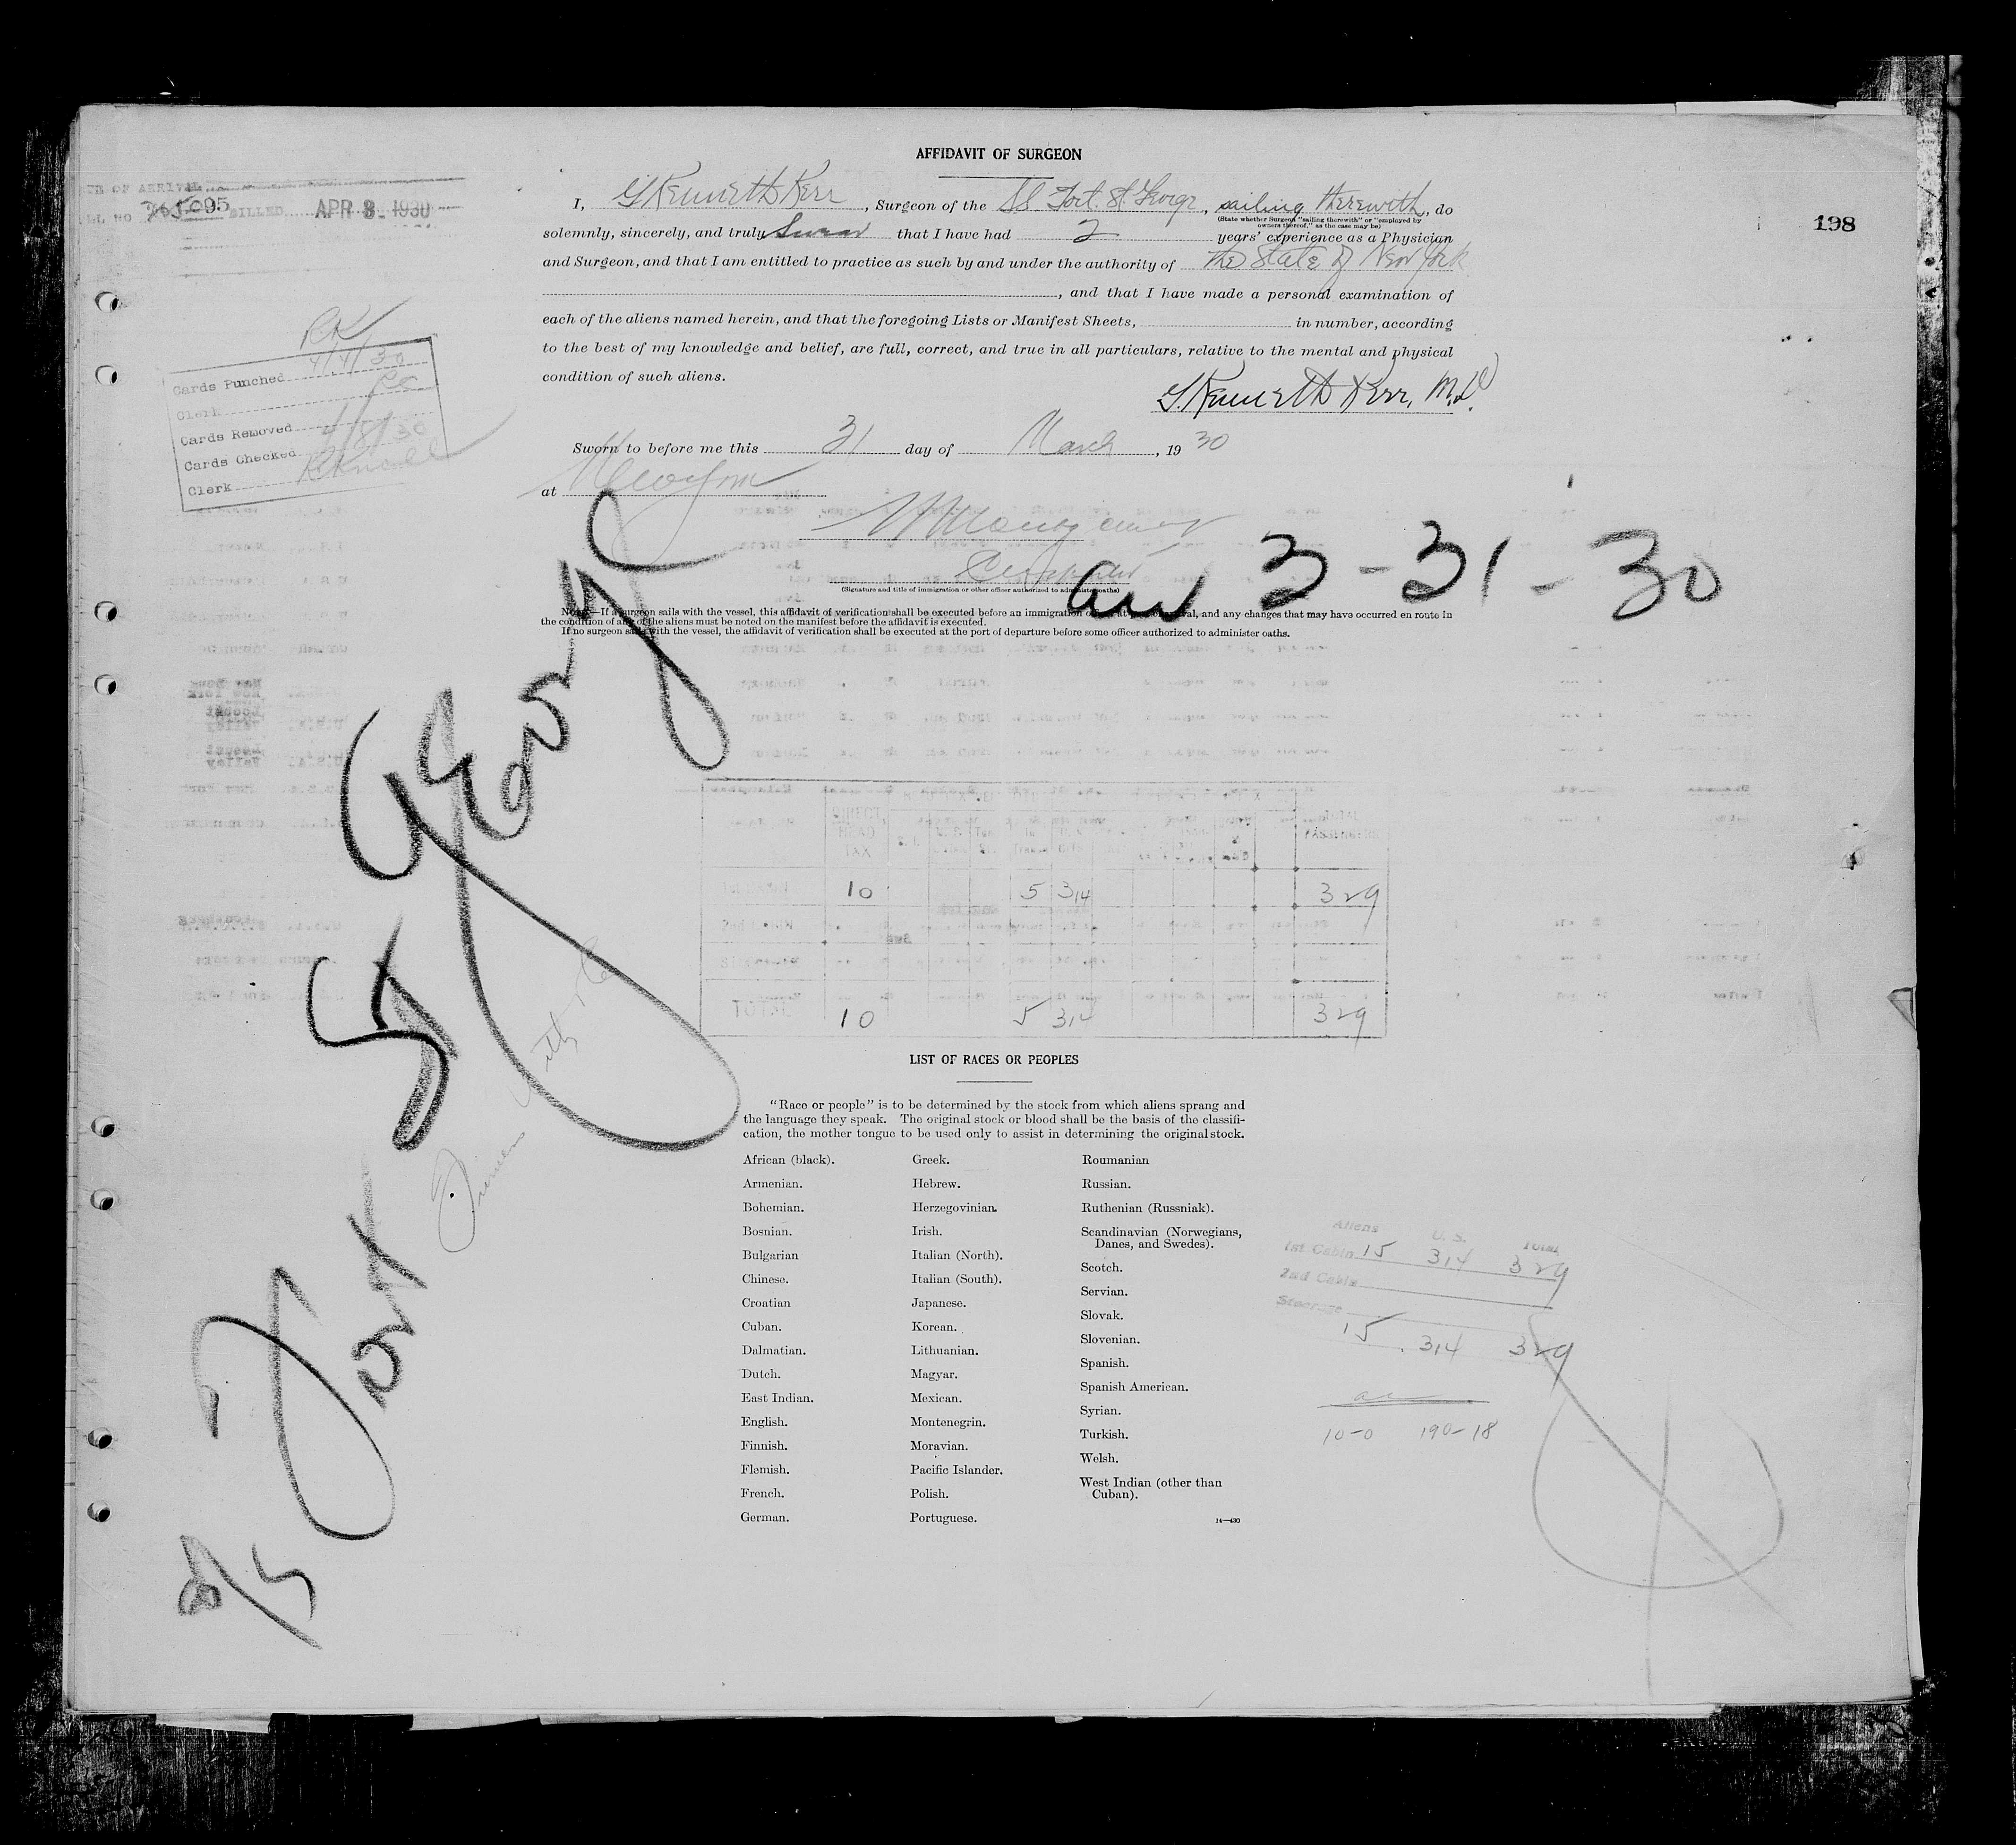 AFFIDAVIT OF SURGEON
I, G Kenneth Kerr, Surgeon of the SS Fort. St. George, sailing therewith, do
(State whether Surgeon "sailing therewith" or "employed by
owners thereof," as the case may be)
solemnly, sincerely, and truly Swear that I have had 2 years' experience as a Physician
and Surgeon, and that I am entitled to practice as such by and under the authority of the State of New York
, and that I have made a personal examination of
each of the aliens named herein, and that the foregoing Lists or Manifest Sheets, in number, according
to the best of my knowledge and belief, are full, correct, and true in all particulars, relative to the mental and physical
condition of such aliens.
G. Kenneth Kerr, M.D.
Sworn to before me this 31 day of March, 19 30
at New York
(Signature and title of immigration or other officer authorized to administer oaths)
NOTE.—If a surgeon sails with the vessel, this affidavit of verification shall be executed before an immigration officer at port of arrival, and any changes that may have occurred en route in
the condition of any of the aliens must be noted on the manifest before the affidavit is executed.
If no surgeon sails with the vessel, the affidavit of verification shall be executed at the port of departure before some officer authorized to administer oaths.
OF ARRIVAL
LL NO 265095 BILLED APR 3 - 1930
198
RK
Cards Punched 4/4/30
Clerk
Cards Removed 4/8/30
Cards Checked
Clerk
arr 3-31-30
S/S Fort St George
DIRECT HEAD TAX
TOTAL PASSENGERS
10 5 314 329
TOTAL 10 5 314 329
LIST OF RACES OR PEOPLES
"Race or people" is to be determined by the stock from which aliens sprang and
the language they speak. The original stock or blood shall be the basis of the classifi-
cation, the mother tongue to be used only to assist in determining the original stock.
African (black).
Armenian.
Bohemian.
Bosnian.
Bulgarian
Chinese.
Croatian
Cuban.
Dalmatian.
Dutch.
East Indian.
English.
Finnish.
Flemish.
French.
German.
Greek.
Hebrew.
Herzegovinian.
Irish.
Italian (North).
Italian (South).
Japanese.
Korean.
Lithuanian.
Magyar.
Mexican.
Montenegrin.
Moravian.
Pacific Islander.
Polish.
Portuguese.
Roumanian
Russian.
Ruthenian (Russniak).
Scandinavian (Norwegians,
Danes, and Swedes).
Scotch.
Servian.
Slovak.
Slovenian.
Spanish.
Spanish American.
Syrian.
Turkish.
Welsh.
West Indian (other than
Cuban).
14—430
Aliens U. S. Total
1st Cabin 15 314 329
2nd Cabin
Steerage
15 314 329
10-0 190-18